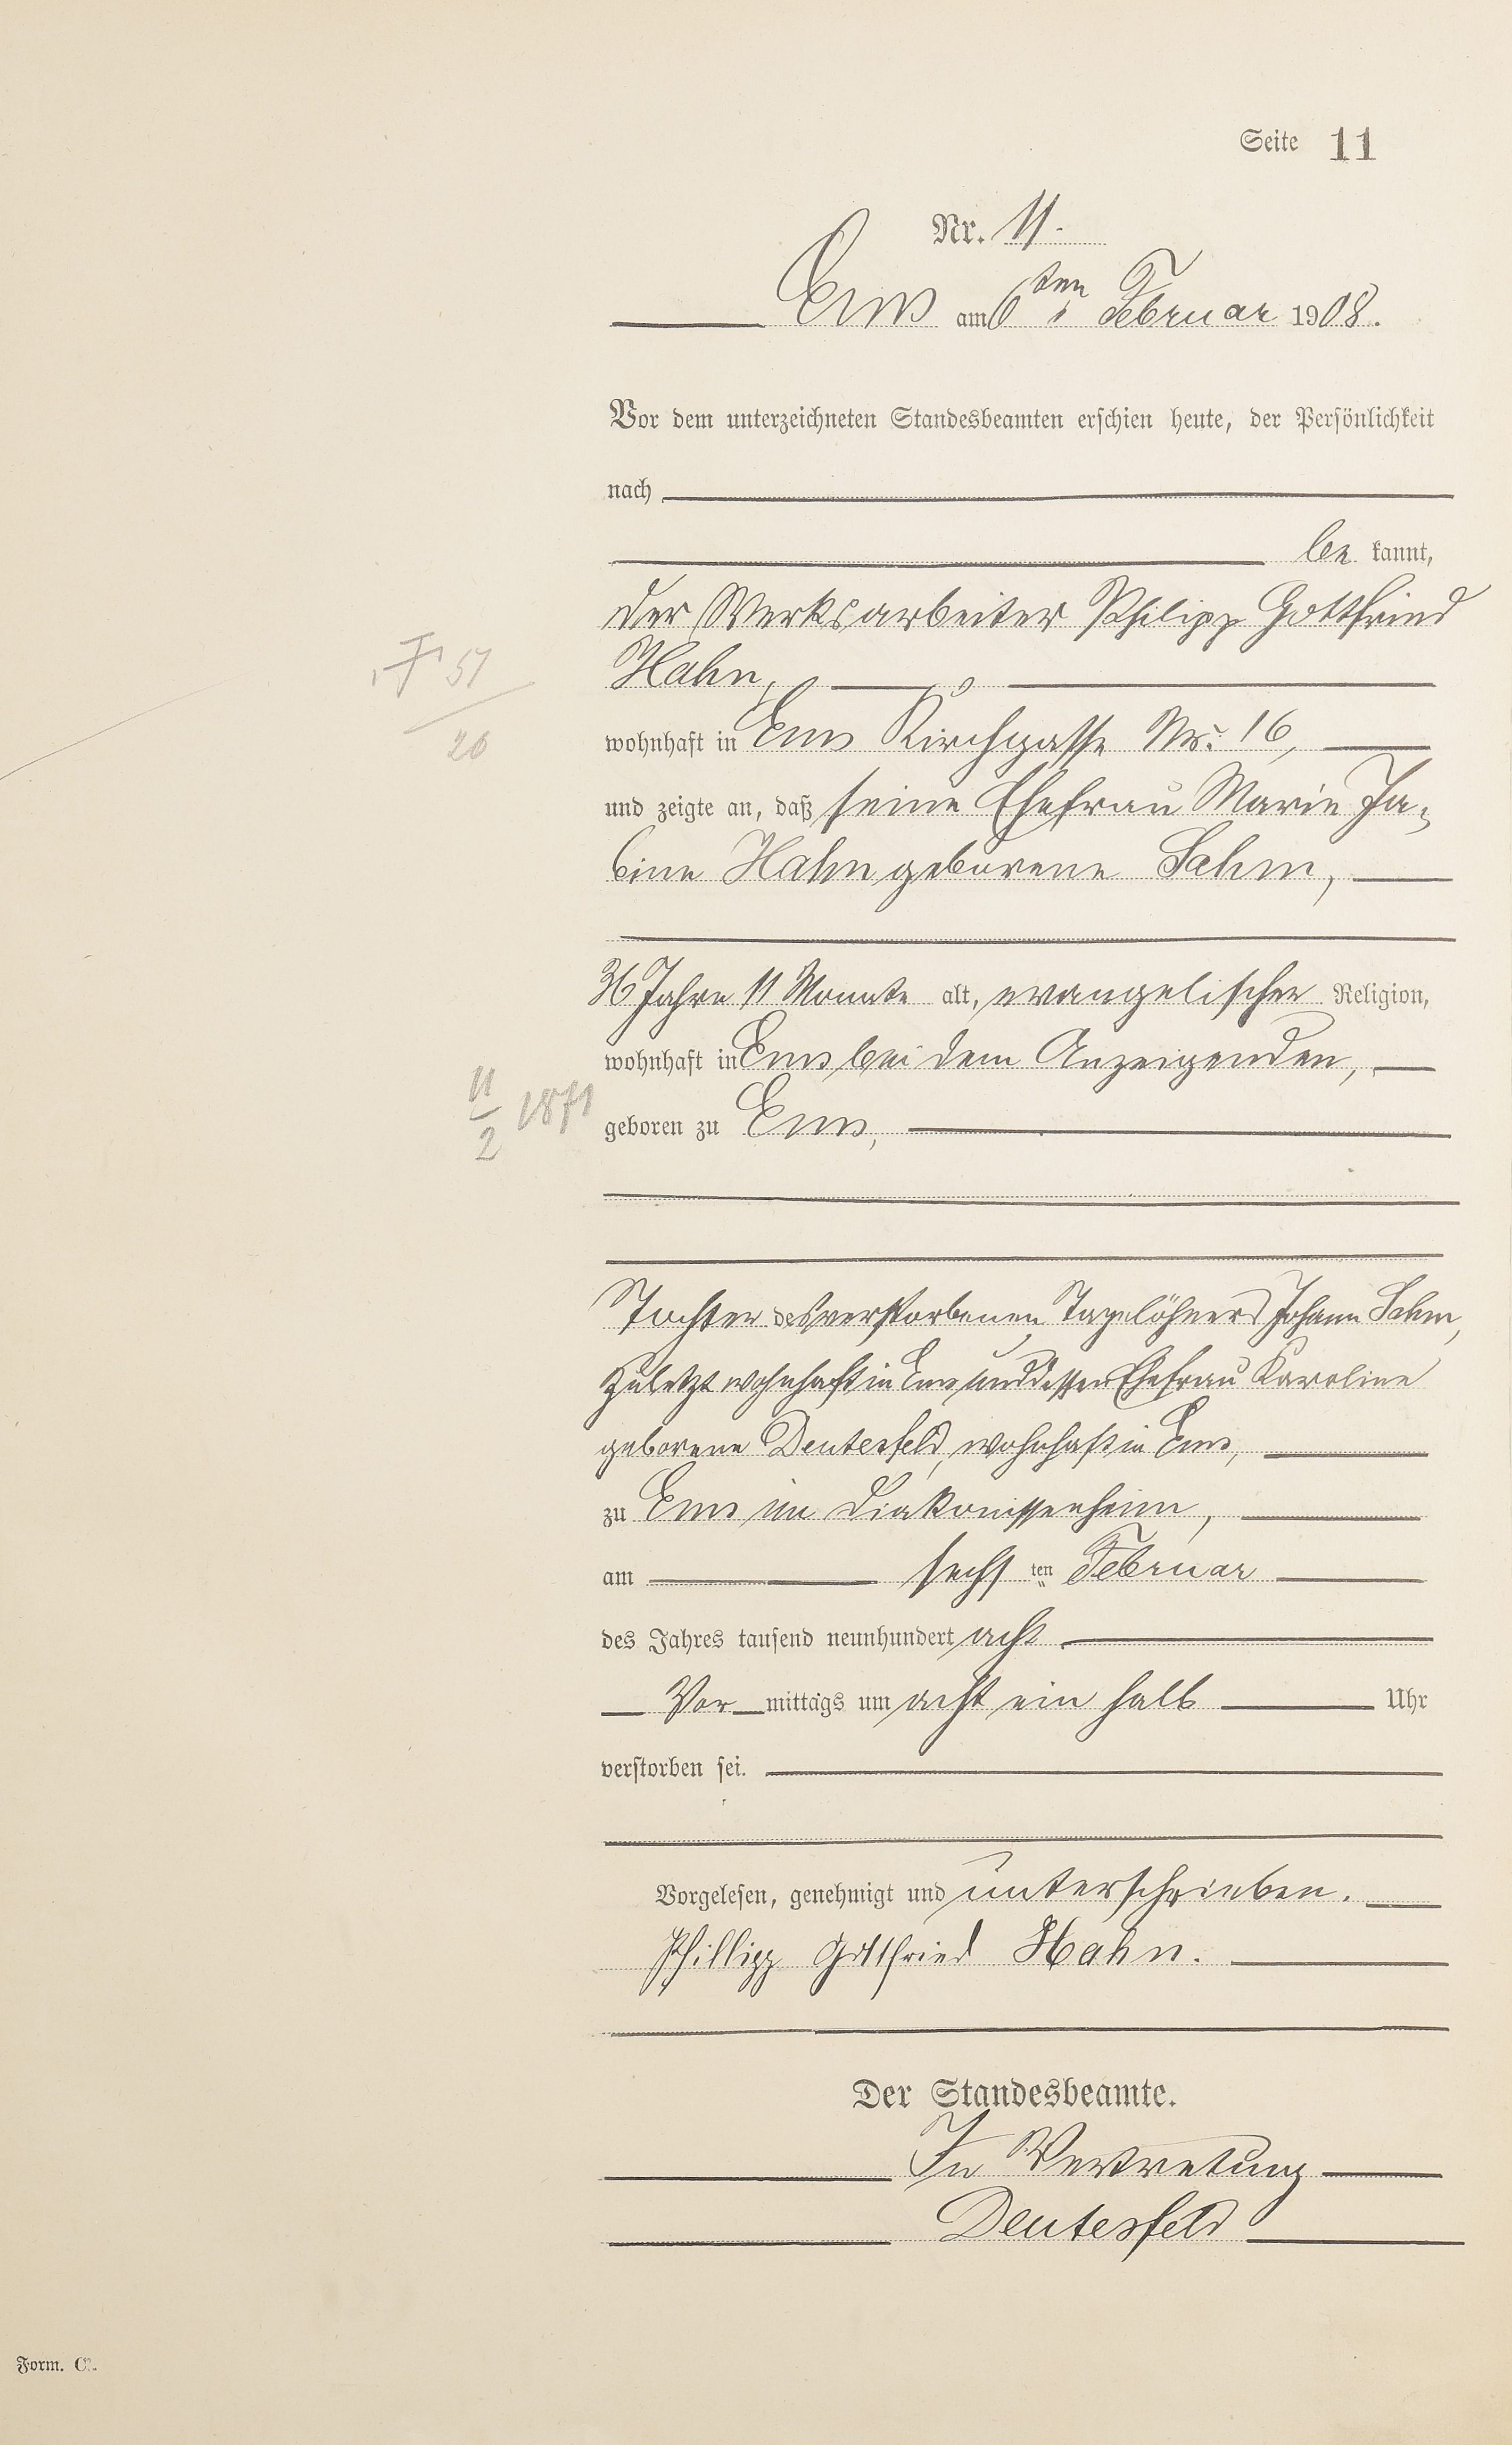 Seite 11
Nr. 11.
Ems am 6ten Februar 1908.
Vor dem unterzeichneten Standesbeamten erschien heute, der Persönlichkeit
nach
be kannt,
der Werksarbeiter Philipp Gottfried
Hahn,
wohnhaft in Ems Kirchgasse Nr. 16,
und zeigte an, daß seine Ehefrau Marie Ja-
bine Hahn geborene Sahm,
36 Jahre 11 Monate alt, evangelischer Religion,
wohnhaft in Ems bei dem Anzeigenden,
geboren zu Ems,
Tochter des verstorbenen Tagelöhners Johann Sahm,
zuletzt wohnhaft in Ems und dessen Ehefrau Karoline
geborene Deutesfeld, wohnhaft in Ems,
zu Ems im Diakonissenheim,
am sechs ten Februar
des Jahres tausend neunhundert acht
Vor mittags um acht ein halb Uhr
verstorben sei.
Vorgelesen, genehmigt und unterschrieben.
Phillipp Gottfried Hahn.
Der Standesbeamte.
In Vertretung
Deutesfeld
51
26
11
2 1871
Form. C.